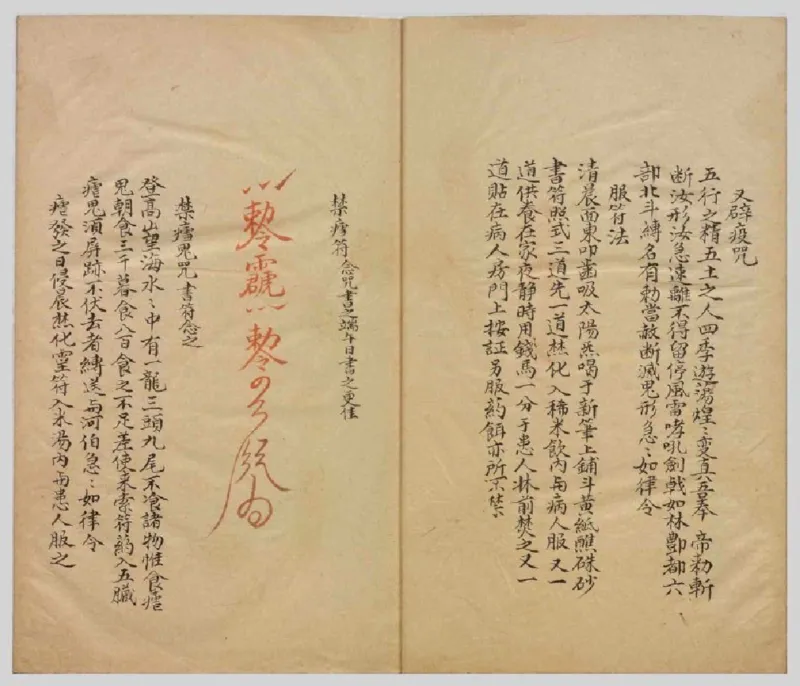 又辟疫咒
五行之精五土之人四季遊蕩煌〻變真吾奉帝勅斬
断汝形汝急速離不得留停風雷哮吼劍戟如林酆都六
部北斗縛名有勅當赦断滅鬼形急〻如律令
服符法
清晨面東叩齒吸太陽炁喝于新筆上鋪斗黃紙蘸硃砂
書符照式三道先一道焚化入稀米飲內与病人服又一
道供養在家夜静時用錢馬一分于患人牀前焚之又一
道貼在病人房門上按証另服药餌亦所不禁
禁疹符念咒書之端午日書之更佳
勅令 勅令
禁瘧鬼咒書符念之
登高山望海水〻中有一龍三頭九尾不飡諸物惟食瘧
鬼朝食三千暮食八百食之不足差使来索符药入五臟
瘧鬼須屏跡不伏去者縛送与河伯急〻如律令
瘧發之日侵晨焚化靈符入米湯內与患人服之